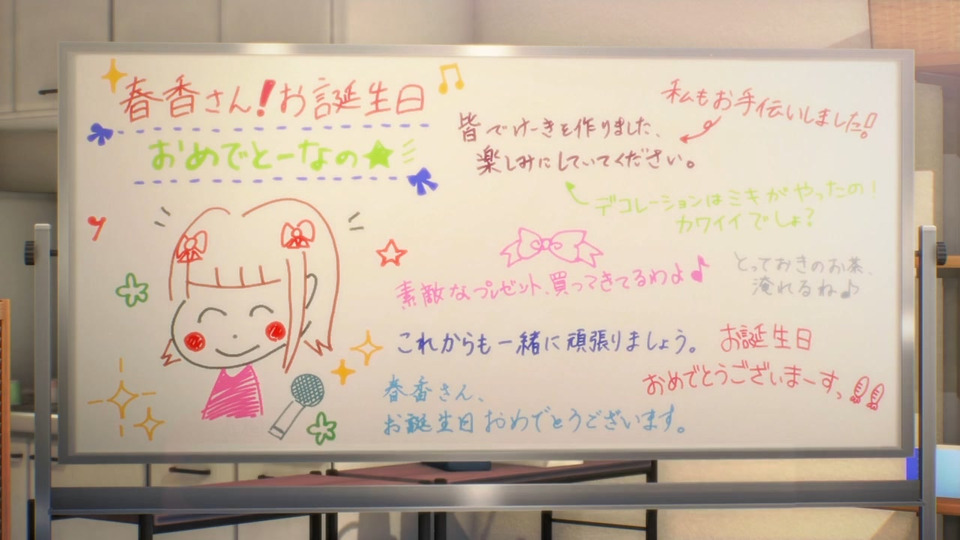 春香さん!お誕生日
おめでとーなの★
皆でけーきを作りました、
楽しみにしていてください。
私もお手伝いしました!!
デコレーションはミキがやったの!
カワイイでしょ?
素敵なプレゼント、買ってきてるわよ♪
とっておきのお茶、
淹れるね♪
これからも一緒に頑張りましょう。
お誕生日
おめでとうございまーすっ
春香さん、
お誕生日おめでとうございます。